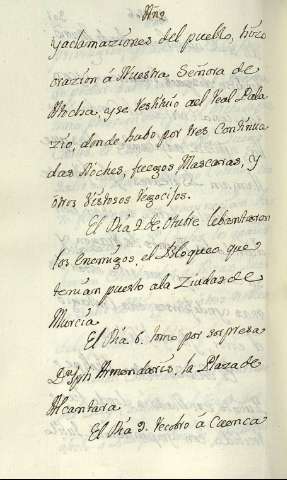 Añz
yaclamaziones del pueblo, hizo
orazion á Nuestra Señora de
Atocha, yse Restituio ael Real Pala
zio, donde hubo por tres Continua
das Noches, fuegos Mascaras, y
otros Vistosos Regocijos.
El Dia 2 de Otubre lebantaron
los Enemigos, el Bloqueo que
tenian puesto ala Ziudad de
Murcia.
El Dia 6. tomo por sorpresa
Dn Jph Armendaris, la Plaza de
Alcantara.
El Dia 9. Recobro á Cuenca